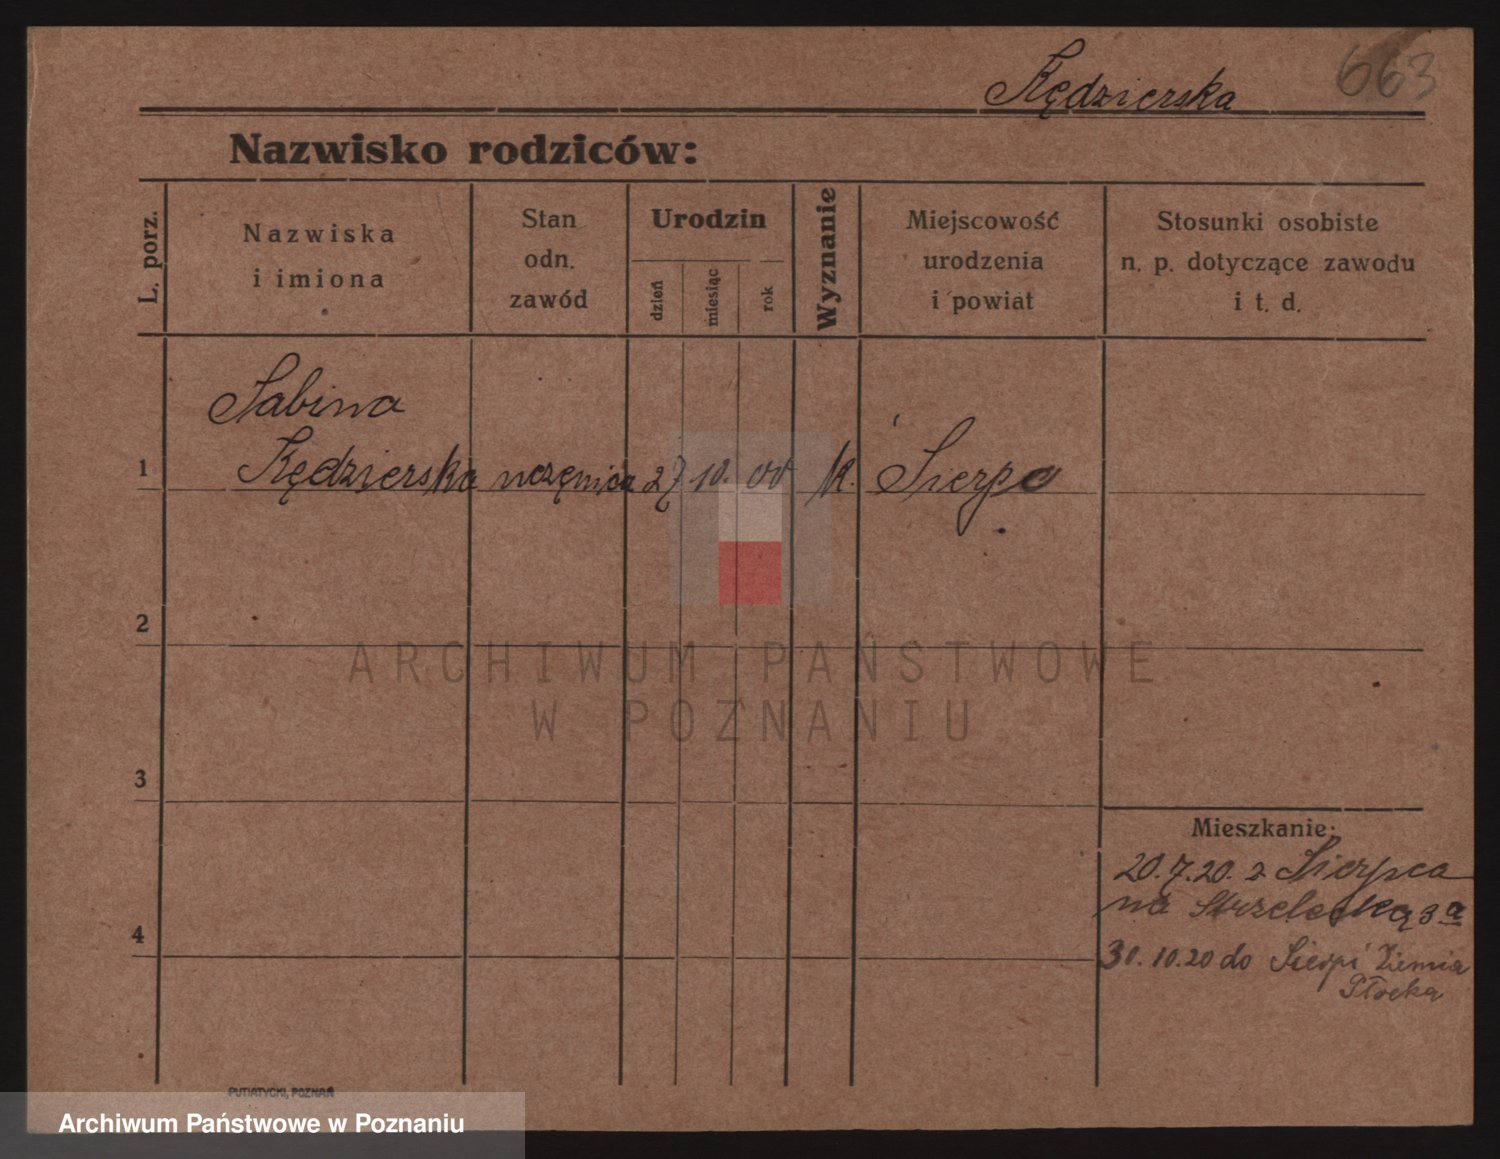 Kędzierska 663
Nazwisko rodziców:
L. porz.
Nazwiska
i imiona
Stan
odn.
zawód
Urodzin
dzień
miesiąc
rok
Wyznanie
Miejscowość
urodzenia
i powiat
Stosunki osobiste
n. p. dotyczące zawodu
i t. d.
Sabina
1 Kędzierska uczęnica 27. 10. 00 K. Sierpc
2
3
4
ARCHIWUM PAŃSTWOWE
W POZNANIU
Mieszkanie:
20.7.20. z Sierpca
na Strzelecką 3a
30.10.20 do Sierpc Ziemia
Płocka
PUTIATYCKI, POZNAŃ
Archiwum Państwowe w Poznaniu